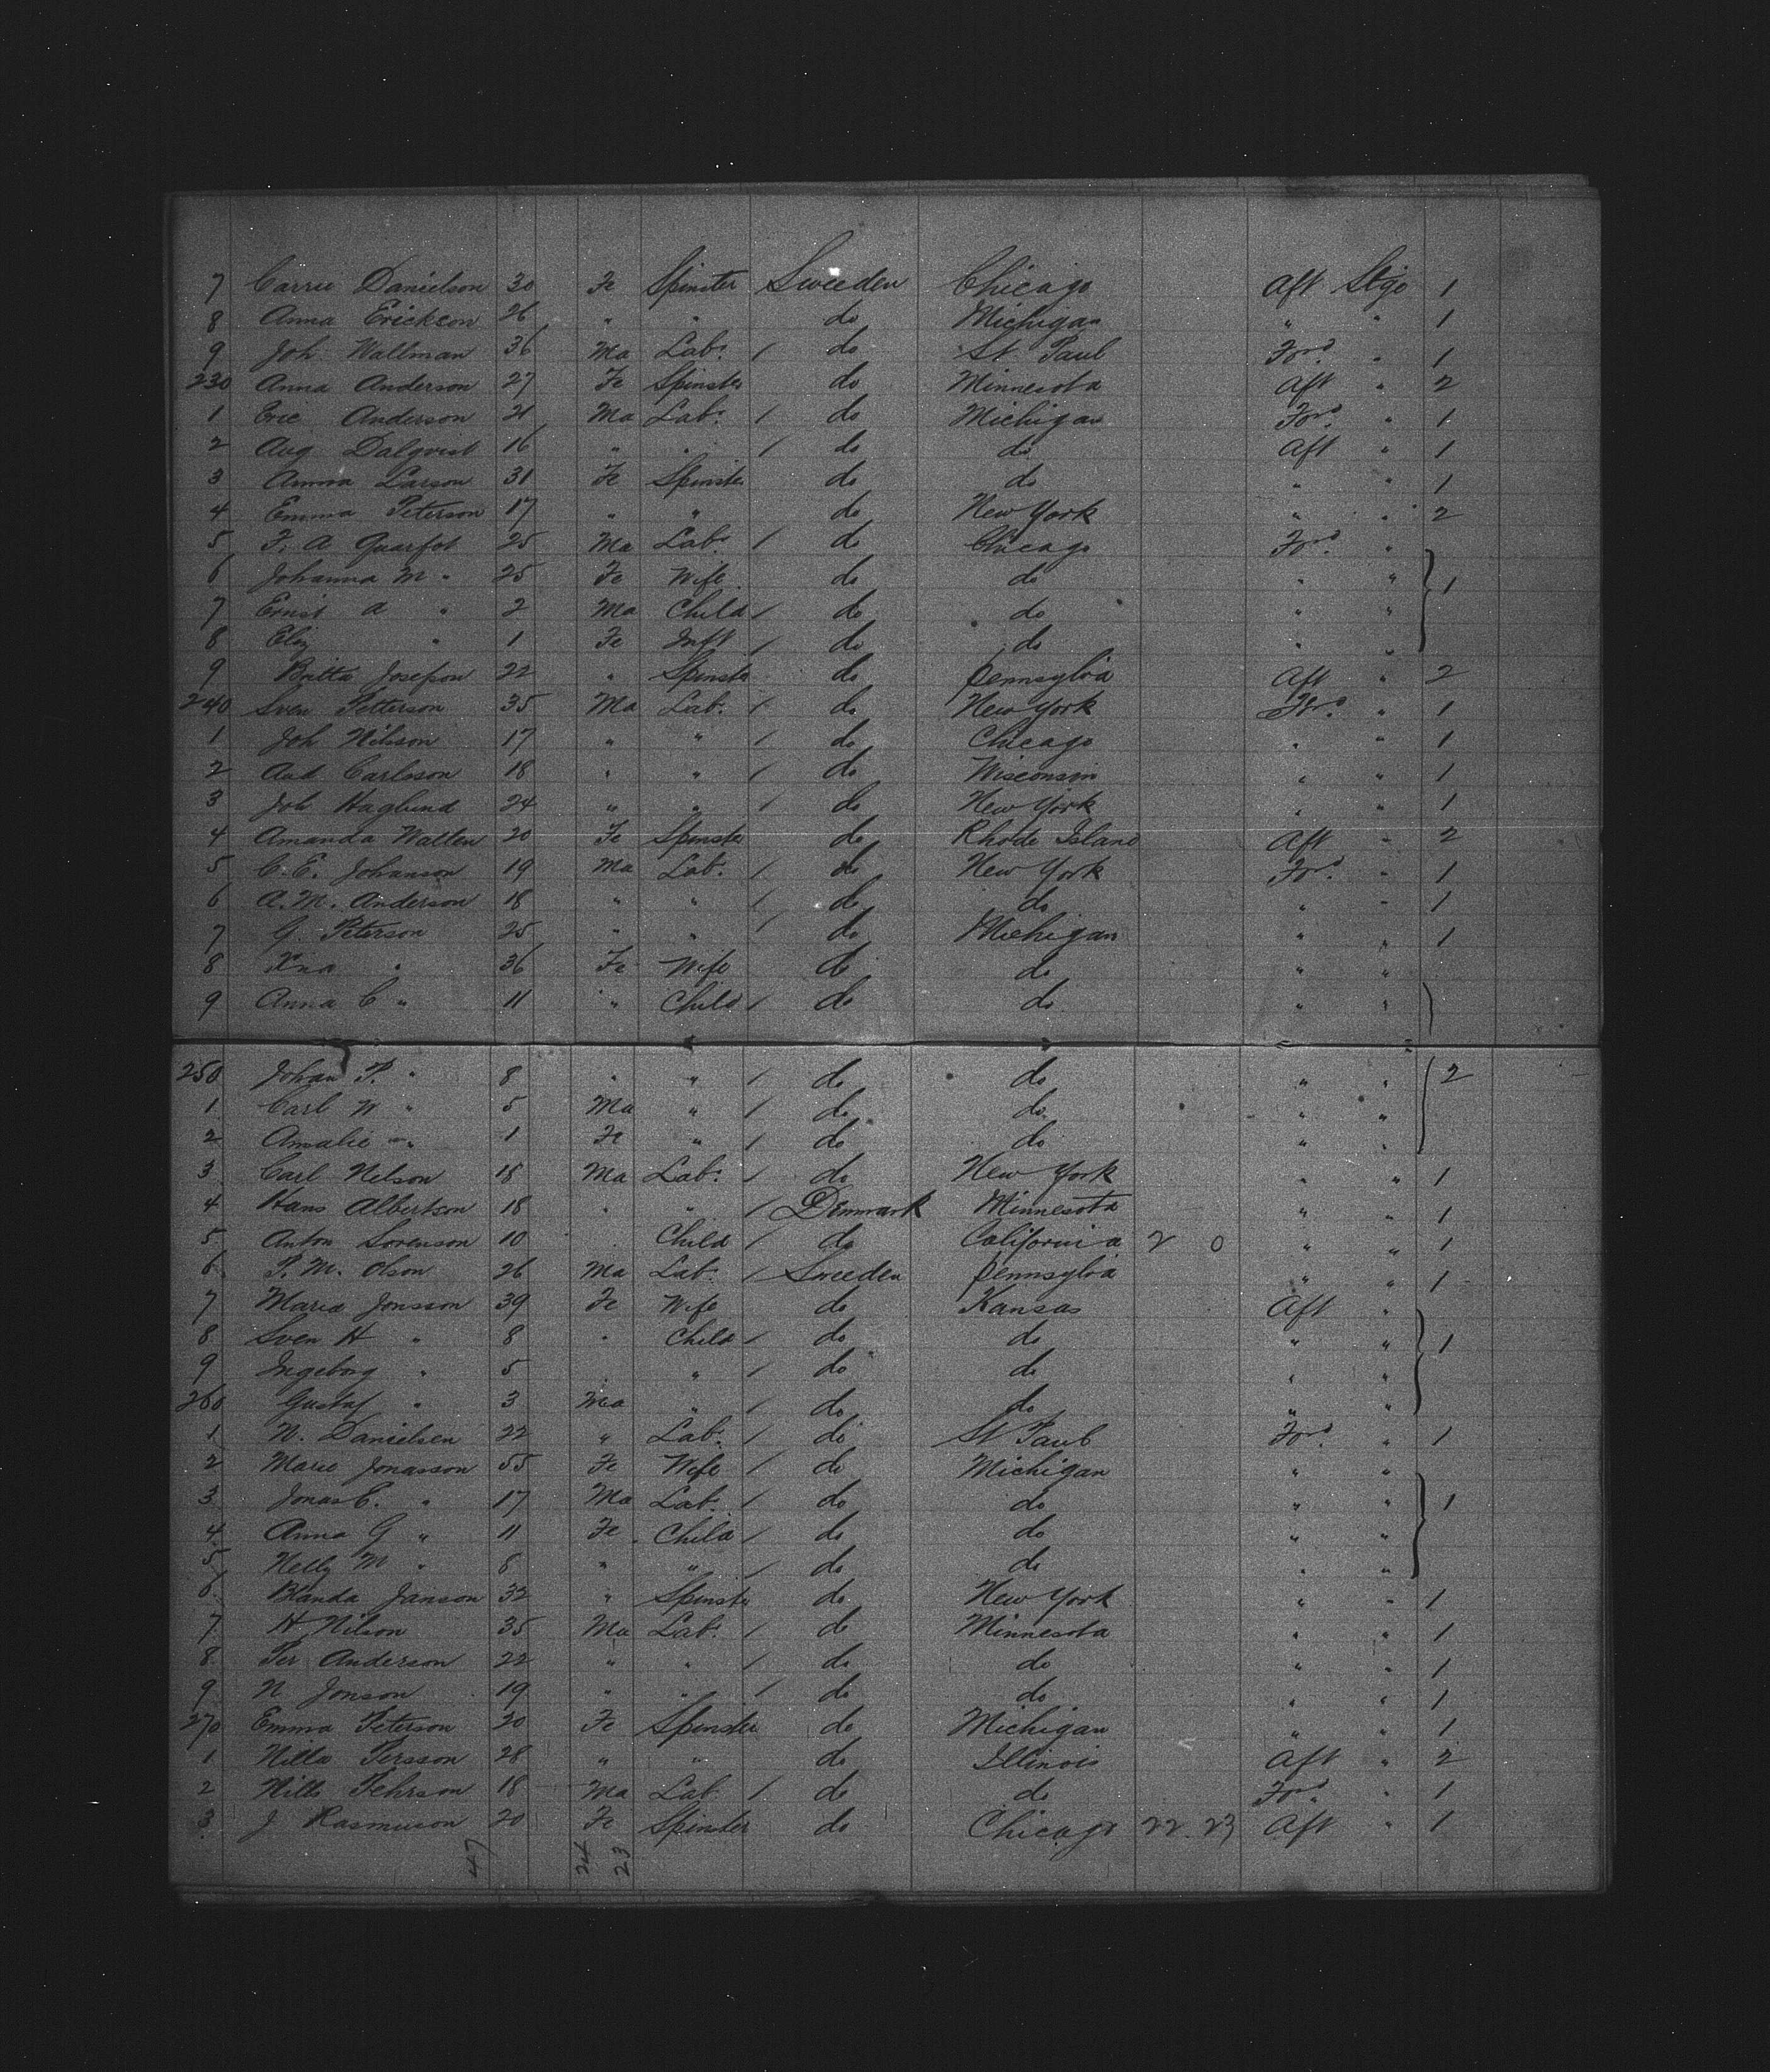 7 Carrie Danielson 30 Fe Spinster Sweeden Chicago Aft Stge 1
8 Anna Erickson 26 " " do Michigan " " 1
9 Joh. Wallman 36 Ma Labr / do St Paul Ford " 1
230 Anna Anderson 27 Fe Spinster do Minnesota Aft " 2
1 Eric Anderson 21 Ma Labr / do Michigan Ford " 1
2 Aug Dalqvist 16 " " / do do Aft " 1
3 Anna Larson 31 Fe Spinster do do " 1
4 Emma Peterson 17 " " do New York " " 2
5 F. A Quarfot 25 Ma Labr / do Chicago Ford "
6 Johanna M " 25 Fe Wife do do " " 1
7 Ernst A " 2 Ma Child / do do " "
8 Eliz " 1 Fe Inft / do do " "
9 Britta Josefson 22 " Spinster do Pennsylva Aft " 2
240 Sven Petterson 35 Ma Labr / do New York Ford " 1
1 Joh Nilsson 17 " " / do Chicago " " 1
2 Aud Carlsson 18 " " / do Wisconsin " " 1
3 Joh Haglund 24 " " / do New York " " 1
4 Amanda Wallen 20 Fe Spinster do Rhode Island Aft " 2
5 C. E. Johanson 19 Ma Labr / do New York Ford " 1
6 A. M. Anderson 18 " " / do do " " 1
7 G. Peterson 25 " " / do Michigan " " 1
8 " 36 Fe Wife do do " "
9 Anna C " 11 " Child / do do " "
250 Johan P. " 8 " " / do do " " 2
1 Carl W " 5 Ma " / do do " "
2 Amalie " 1 Fe " / do do " "
3 Carl Nelson 18 Ma Labr / do New York " " 1
4 Hans Albertson 18 " " / Denmark Minnesota " " 1
5 Anton Sorenson 10 Child / do California 2 0 " " 1
6 P. M. Olson 26 Ma Labr / Sweeden Pennsylva " " 1
7 Maria Jonsson 39 Fe Wife do Kansas Aft "
8 Sven H " 8 " Child / do do " " 1
9 Ingeborg " 5 " / do do " "
260 Gustaf " 3 Ma " / do do " "
1 N. Danielsen 22 " Labr / do St Paul Ford " 1
2 Marie Jonasson 55 Fe Wife / do Michigan " "
3 Jonas C. " 17 Ma Labr / do do " " 1
4 Anna G " 11 Fe Child / do do " "
5 Nelly M " 8 " " / do do " "
6 Blanda Janson 32 " Spinster do New York " " 1
7 H Nilson 35 Ma Labr / do Minnesota " " 1
8 Per Anderson 22 " " / do do " " 1
9 N Jonson 19 " " / do do " " 1
270 Emma Peterson 20 Fe Spinster do Michigan " " 1
1 Nilla Persson 28 " " do Illinois Aft " 2
2 Nills Pehrson 18 Ma Lab / do do Ford " 1
3 J Rasmuson 20 Fe Spinster do Chicago 22 23 Aft " 1
47 24 23